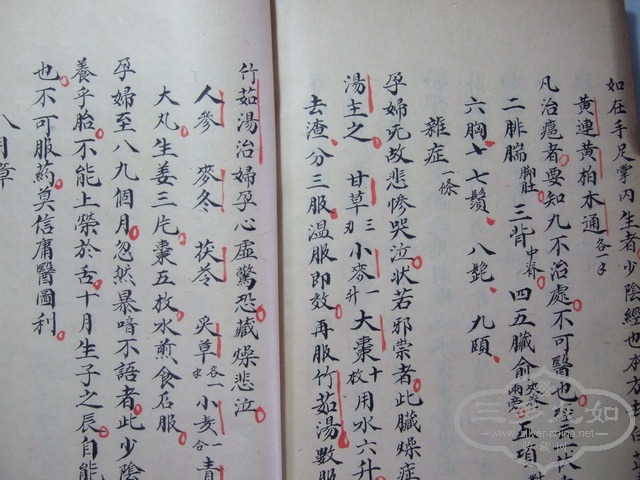 如在手足掌内生者少陰經也
黄連黄柏木通各一
凡治瘡者要知九不治處不可醫也
二腓腨 三背 四五臟俞 五項
六胸 七鬚 八髭 九頤
雜症一條
孕婦无故悲惨哭泣状若邪祟者此臟燥症
湯主之 甘草三 小麥一升 大棗十枚 用水六升
去渣分三服温服即效再服竹茹湯數服
竹茹湯治婦孕心虚驚恐臟燥悲泣
人參 麥冬 茯苓 炙草各一 小麦一合 青
大丸生姜三片棗五枚水煎食后服
孕婦至八九個月忽然暴喑不語者此少陰
養乎胎不能上榮於舌十月生子之辰自能
也不可服药莫信庸醫圖利
八月章